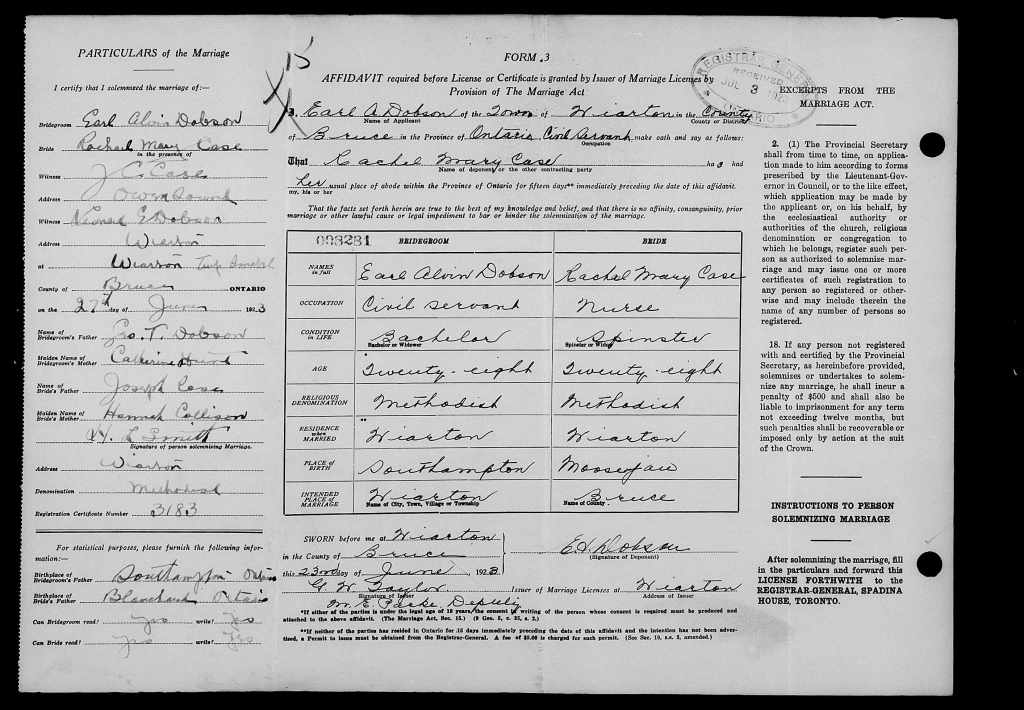 PARTICULARS of the Marriage
I certify that I solemnized the marriage of:—
Bridegroom Earl Alvin Dobson
Bride Rachael Mary Case
in the presence of
Witness J C Case
Address Owen Sound
Witness E Dobson
Address Wiarton
at Wiarton Twp
County of Bruce ONTARIO
on the 27th day of June 1923
Name of Bridegroom's Father Geo. T. Dobson
Maiden Name of Bridegroom's Mother Catherine Hunt
Name of Bride's Father Joseph Case
Maiden Name of Bride's Mother Hannah Collison
L Smith
Signature of person solemnizing Marriage.
Address Wiarton
Denomination Methodist
Registration Certificate Number 3183
For statistical purposes, please furnish the following information:—
Birthplace of Bridegroom's Father Southampton Ontario
Birthplace of Bride's Father Blanchard Ontario
Can Bridegroom read? Yes write? Yes
Can Bride read? Yes write? Yes
15
FORM 3
AFFIDAVIT required before License or Certificate is granted by Issuer of Marriage Licenses by
Provision of The Marriage Act
REGISTRAR GENERAL
RECEIVED
JUL 3 1923
ONTARIO
I, Earl A Dobson of the Town of Wiarton in the County
Name of Applicant County or District
of Bruce in the Province of Ontario Civil Servant make oath and say as follows:
Occupation
That Rachel Mary Case has had
Name of deponent or the other contracting party
her usual place of abode within the Province of Ontario for fifteen days** immediately preceding the date of this affidavit.
my, his or her
That the facts set forth herein are true to the best of my knowledge and belief, and that there is no affinity, consanguinity, prior
marriage or other lawful cause or legal impediment to bar or hinder the solemnization of the marriage.
008281 BRIDEGROOM BRIDE
NAMES in full Earl Alvin Dobson Rachel Mary Case
OCCUPATION Civil servant Nurse
CONDITION in LIFE Bachelor Spinster
Bachelor or Widower Spinster or Widow
AGE Twenty-eight Twenty-eight
RELIGIOUS DENOMINATION Methodist Methodist
RESIDENCE when MARRIED Wiarton Wiarton
PLACE of BIRTH Southampton Moosejaw
INTENDED PLACE of MARRIAGE Wiarton Bruce
Name of City, Town, Village or Township Name of County
SWORN before me at Wiarton
in the County of Bruce E A Dobson
(Signature of Deponent)
this 23rd day of June, 1923
G. W. Taylor Issuer of Marriage Licenses at Wiarton
Signature of Issuer Address of Issuer
M. E. Parke Deputy
*If either of the parties is under the legal age of 18 years, the consent in writing of the person whose consent is required must be produced and
attached to the above affidavit. (The Marriage Act, Sec. 15.) (9 Geo. 5, c. 35, s. 2.)
**If neither of the parties has resided in Ontario for 15 days immediately preceding the date of this affidavit and the intention has not been advertized, a Permit to issue must be obtained from the Registrar-General. A fee of $5.00 is charged for such permit. (See Sec. 19, s.s. 3, amended.)
EXCERPTS FROM THE
MARRIAGE ACT.
2. (1) The Provincial Secretary
shall from time to time, on application
made to him according to forms
prescribed by the Lieutenant-Governor
in Council, or to the like effect,
which application may be made by
the applicant or, on his behalf, by
the ecclesiastical authority or
authorities of the church, religious
denomination or congregation to
which he belongs, register such person
as authorized to solemnize marriage
and may issue one or more
certificates of such registration to
any person so registered or otherwise
and may include therein the
name of any number of persons so
registered.
18. If any person not registered
with and certified by the Provincial
Secretary, as hereinbefore provided,
solemnizes or undertakes to solemnize
any marriage, he shall incur a
penalty of $500 and shall also be
liable to imprisonment for any term
not exceeding twelve months, but
such penalties shall be recoverable or
imposed only by action at the suit
of the Crown.
INSTRUCTIONS TO PERSON
SOLEMNIZING MARRIAGE
After solemnizing the marriage, fill
in the particulars and forward this
LICENSE FORTHWITH to the
REGISTRAR-GENERAL, SPADINA
HOUSE, TORONTO.